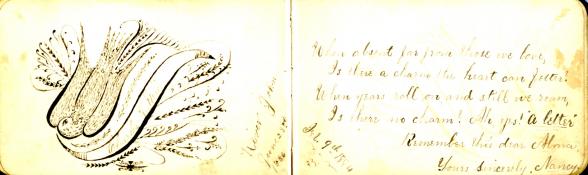 When absent far from those we love,
Is there a charm the heart can fetter?
When years roll on and still we roam,
Is there no charm? Ah yes! "A letter"
Remember this dear Alma,
Yours Sincerely, Nancy
Feb. 9th